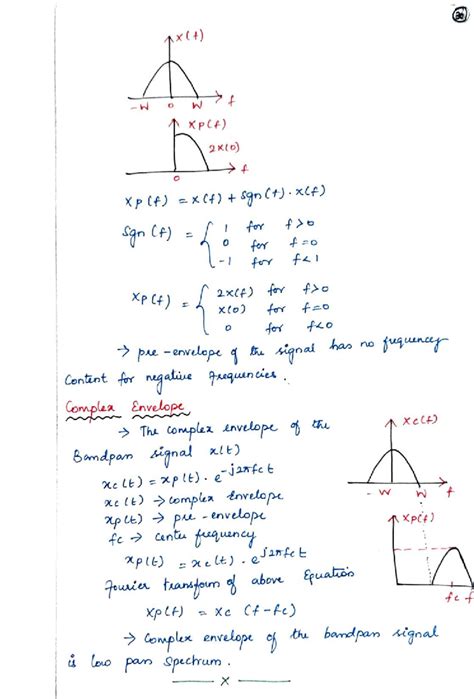 30
x(f)
-W 0 W f
xp(f)
2x(0)
0 f
xp(f) = x(f) + sgn(f) . x(f)
sgn(f) = { 1 for f>0
0 for f=0
-1 for f<1
xp(f) = { 2x(f) for f>0
x(0) for f=0
0 for f<0
→ pre-envelope of the signal has no frequency
content for negative frequencies.
Complex Envelope
→ The complex envelope of the
Bandpass signal x(t)
xc(f)
-W W f
xc(t) = xp(t) . e^-j2πfct
xc(t) → complex envelope
xp(t) → pre-envelope
fc → center frequency
xp(t) = xc(t) . e^j2πfct
xp(f)
fc f
Fourier transform of above Equation
xp(f) = xc (f-fc)
→ Complex envelope of the bandpass signal
is low pass spectrum.
x